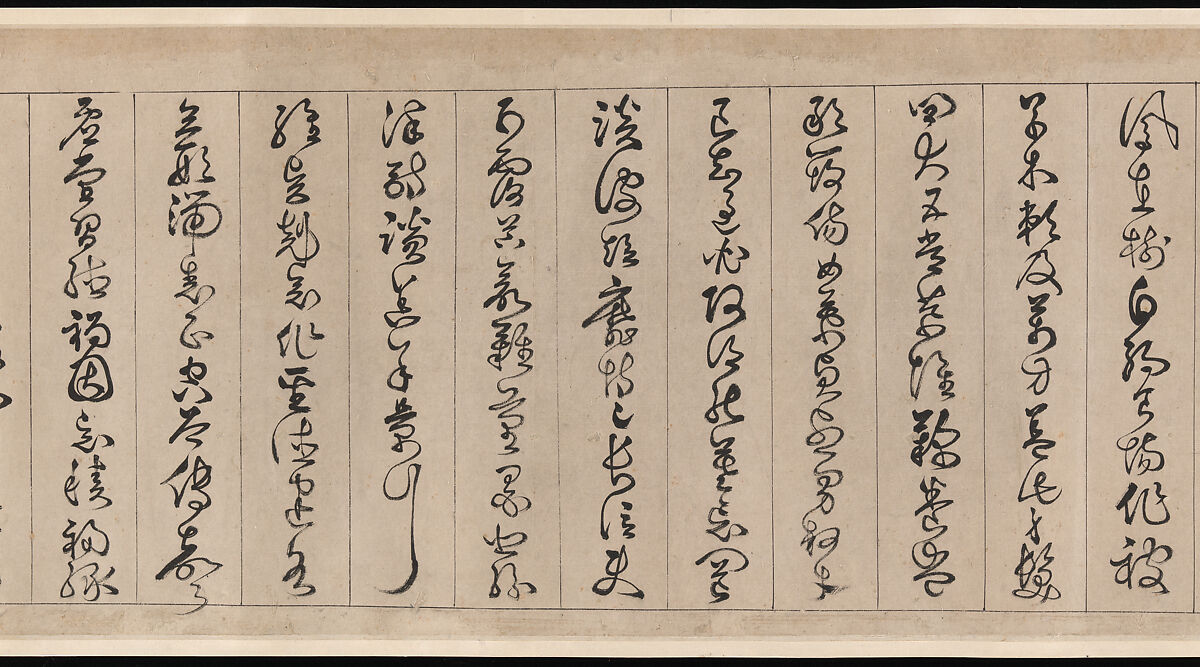 鳳在樹白駒食場化被
草木賴及萬方蓋此身髮
四大五常恭惟鞠養豈
敢毀傷女慕貞潔男效才
良知過必改得能莫忘罔
談彼短靡恃己長信使
可覆器欲難量墨悲絲
染詩讚羔羊景行
維賢剋念作聖德建名
立形端表正空谷傳聲
虛堂習聽禍因惡積福緣